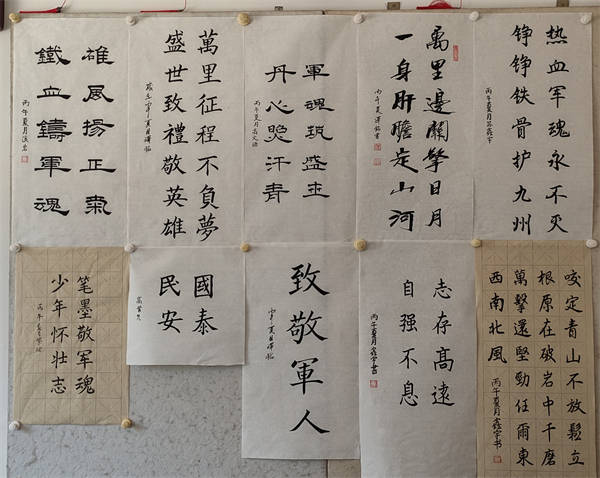 雄風揚正氣
鐵血鑄軍魂
丙午夏月
萬里征程不負夢
盛世致禮敬英雄
軍魂筑盛世
丹心照汗青
丙午夏月
萬里邊關擎日月
一身肝膽定山河
丙午夏
热血军魂永不灭
铮铮铁骨护九州
丙午夏月
笔墨敬军魂
少年怀壮志
丙午
國泰
民安
致敬軍人
志存高遠
自强不息
丙午夏月鑫宇書
咬定青山不放鬆立
根原在破岩中千磨
萬擊還堅勁任爾東
西南北風
丙午夏月鑫宇书